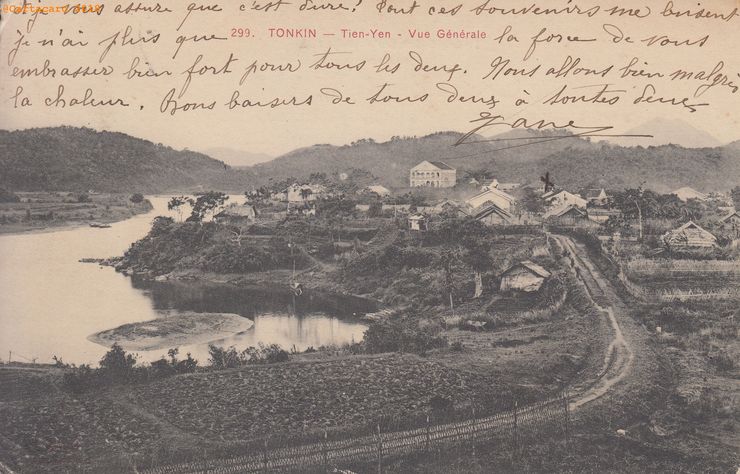 je vous assure que c'est dure! Tout ces souvenirs me brisent
299. TONKIN — Tien-Yen - Vue Générale
je n'ai plus que la force de vous
embrasser bien fort pour tous les deux. Nous allons bien malgrès
la chaleur. Bons baisers de tous deux à toutes deux